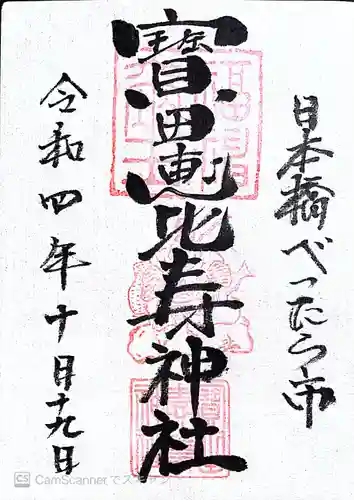 日本橋べったら市
寳田恵比寿神社
令和四年十月十九日
CS CamScanner でスキャン